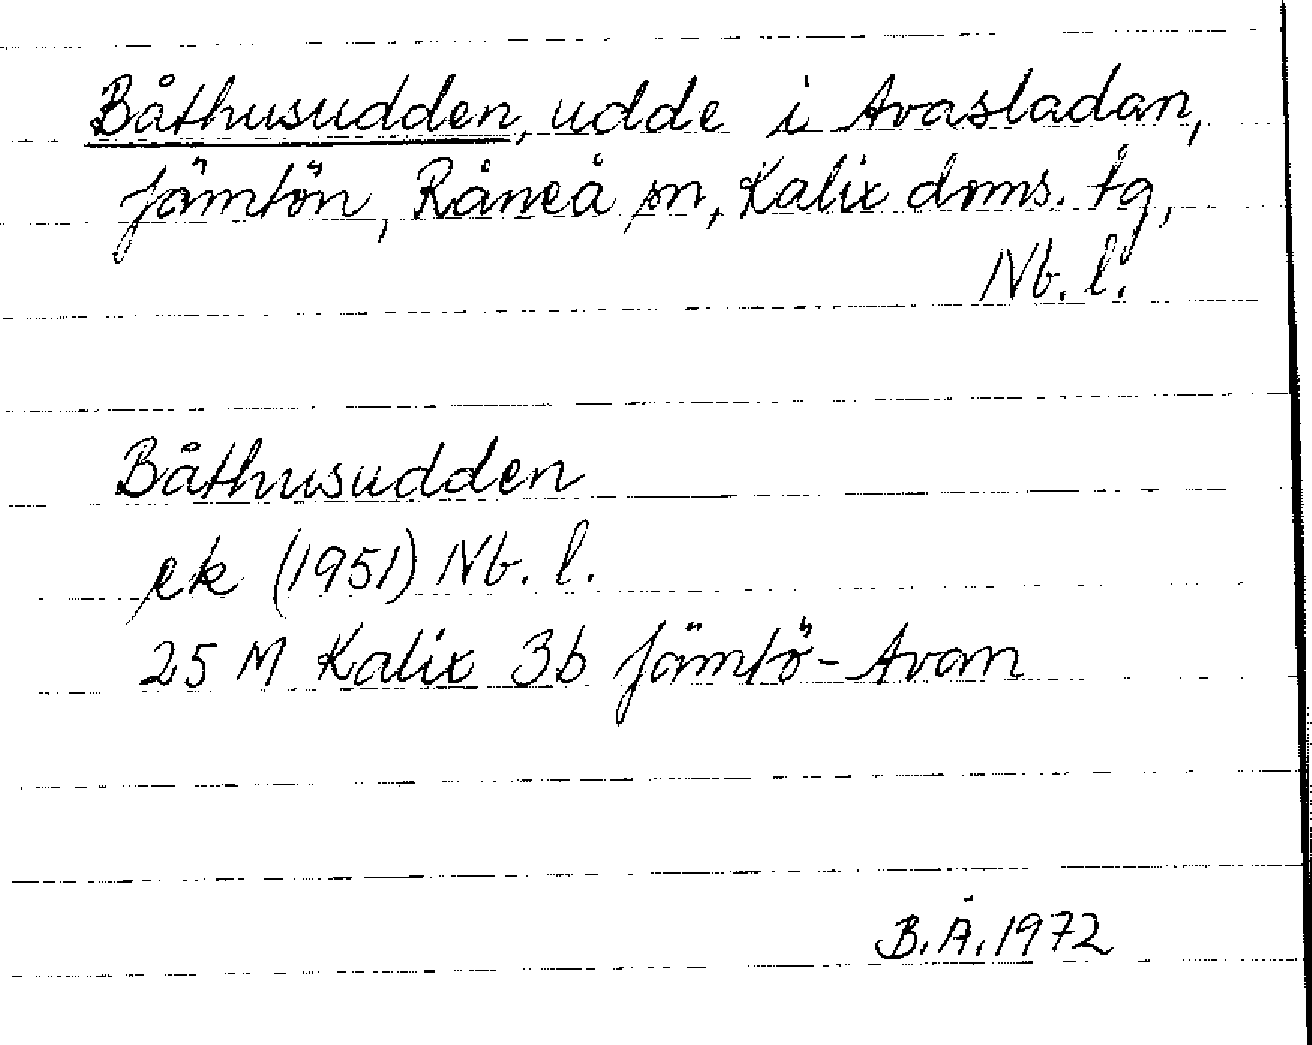 Båthusudden, udde i Avasladan,
Jämtön, Råneå sn, Kalix doms. tg,
Nb. l.
Båthusudden
ek (1951) Nb. l.
25 M Kalix 3b Jämtö-Avan
B.Å.1972